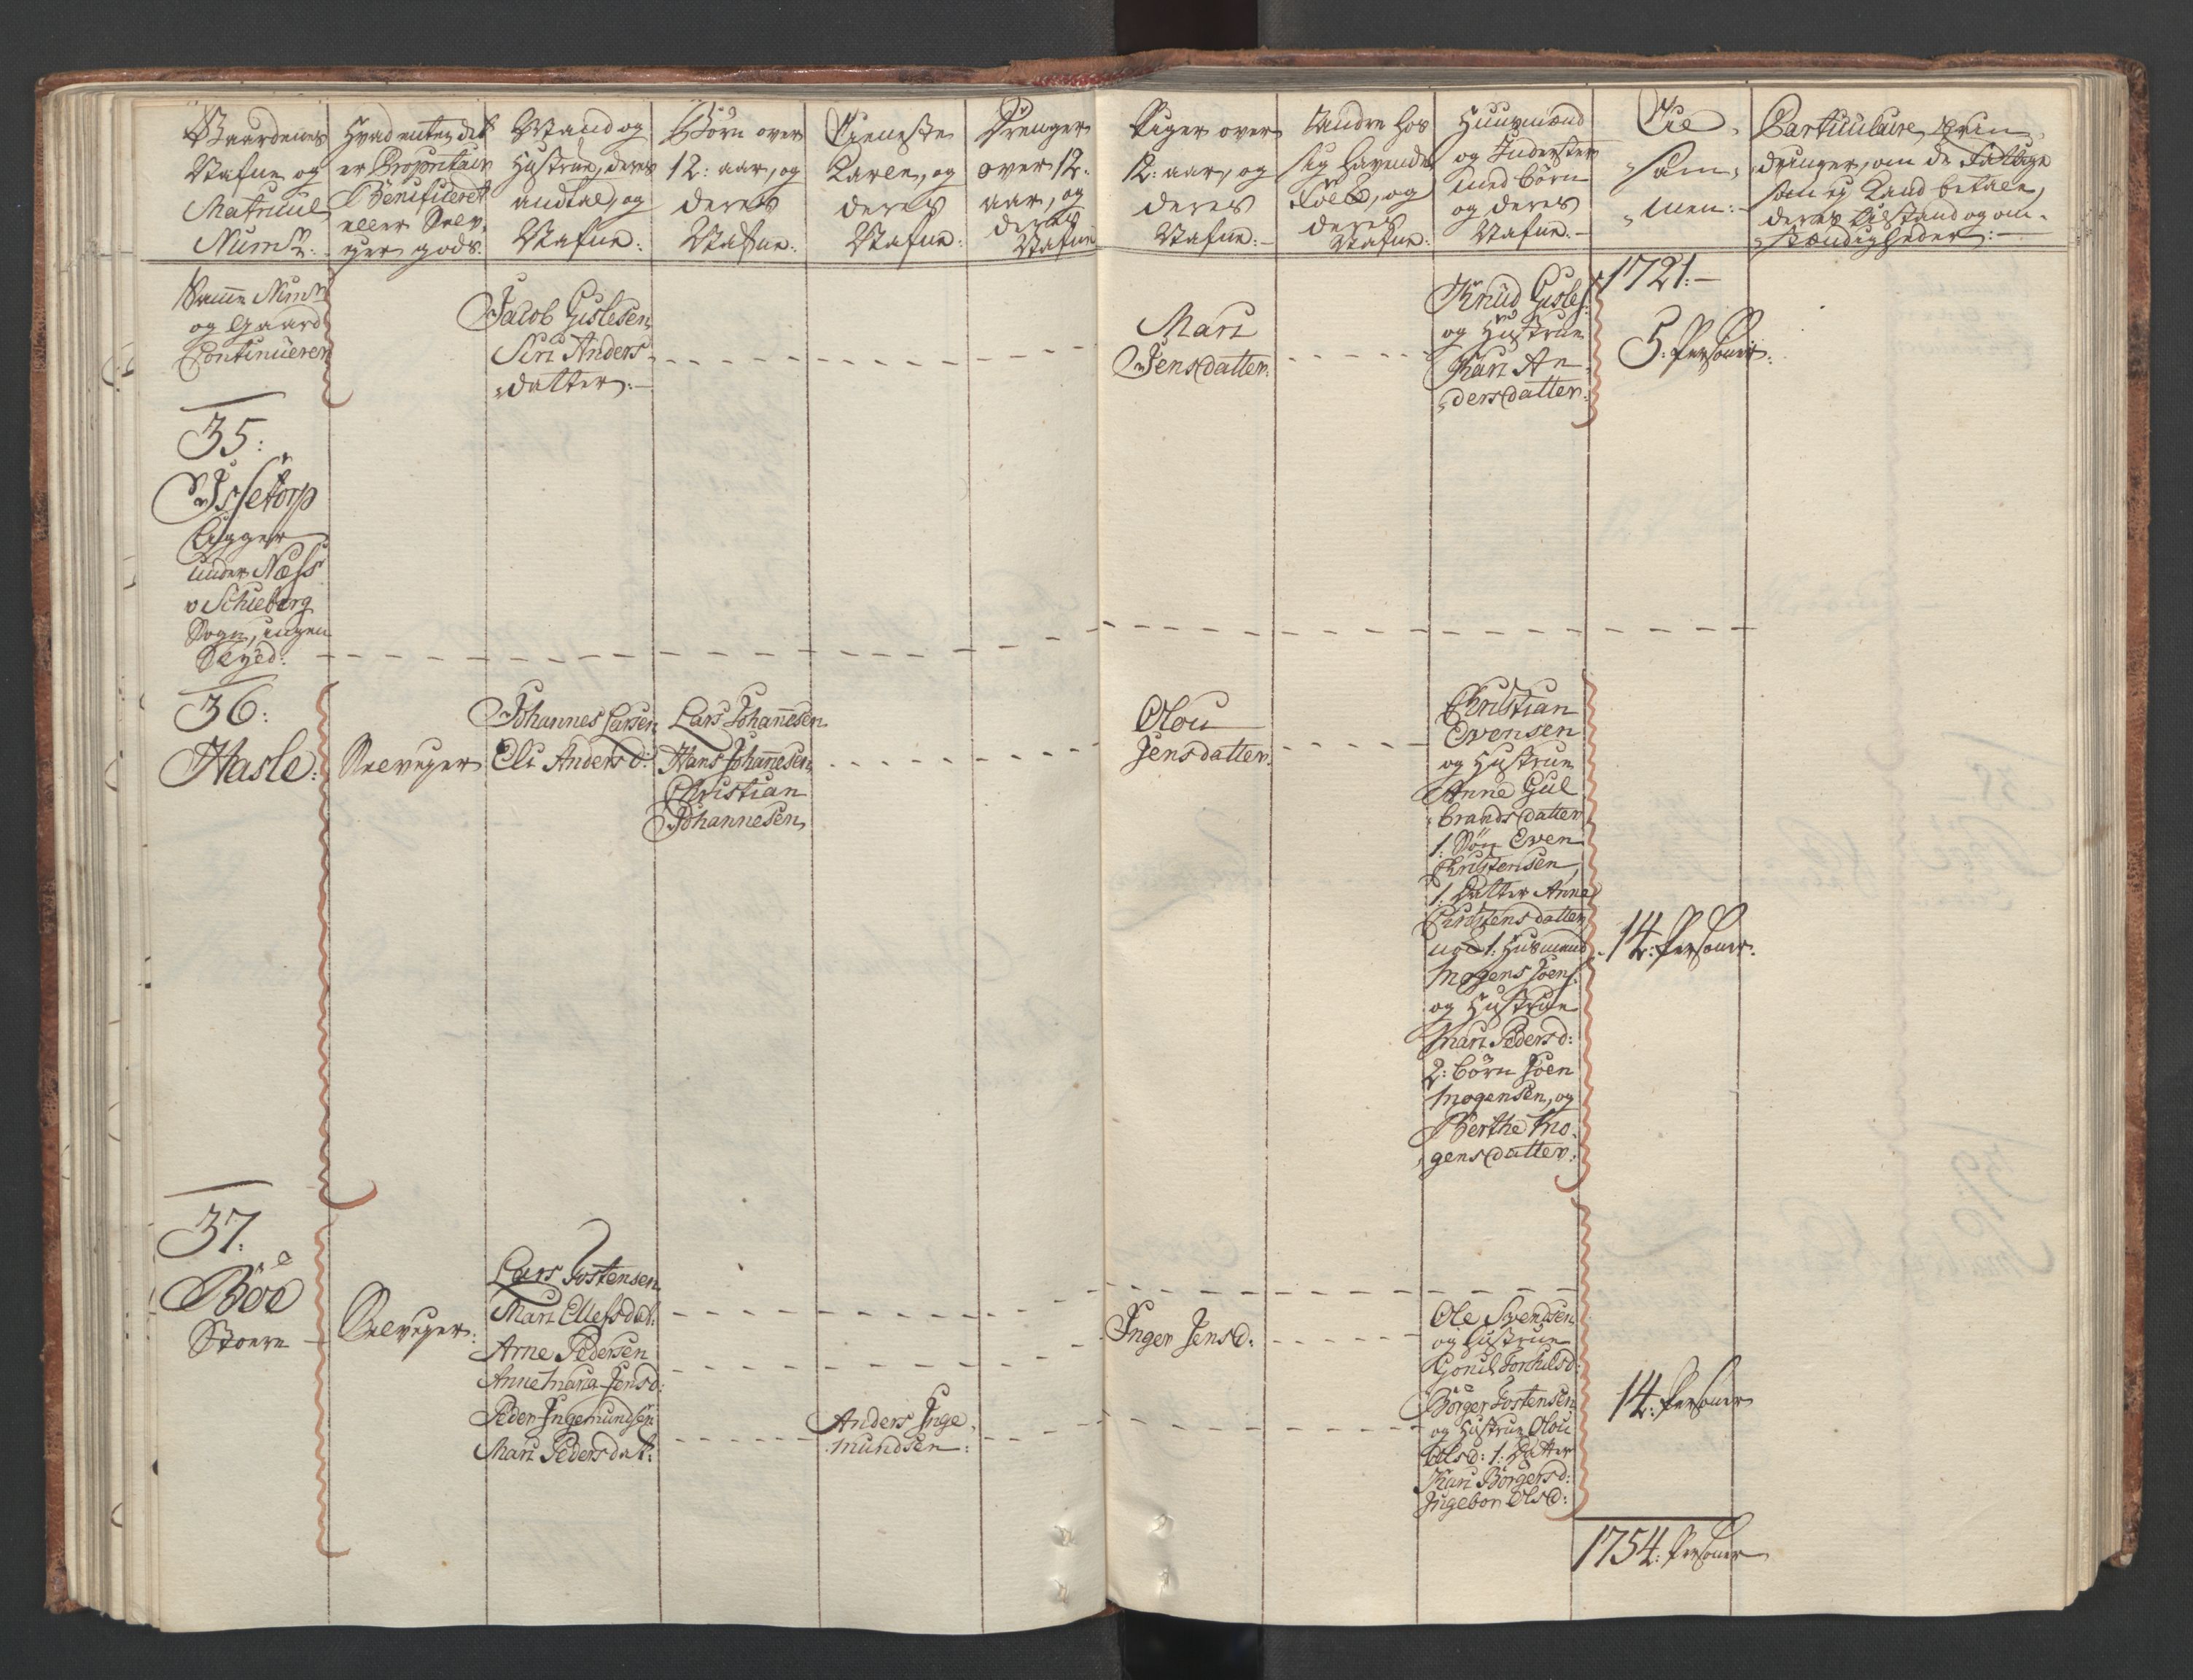 Gaardenes
Nafne og
Matricul
Num̅r:
Hvad enten det
er Proprietair
Benificeret
eller Selv-
yer gods:
Mand og
Hustrue, deres
andtal, og
Nafne:
Børn over
12: aar, og
deres
Nafne:
Tieneste
Karle, og
deres
Nafne:
Drenger
over 12:
aar, og
deres
Nafne
Piger over
12: aar, og
deres
Nafne:
Andre hos
sig havende
Folk, og
deres
Nafne:
Huusmænd
og Inderster
med børn
og deres
Nafne:
Til
sam,
men:
Particulaire, erin
dringer, om de Fattige
som ej kand betale,
deres tilstand og om-
stændigheder:
Samme Num̅r
og Gaard
Continuerer
Jacob Gislesen,
Siri Anders
datter:
Mari
Jensdatter:
Knud Gisles:
og Hustrue
Kari An
dersdatter:
1721:
5: Personer:
35:
Issetorp
Ligger
under Næss
v Schieberg
Sogn, ingen
Øyed:
36:
Hasle:
Selveyer
Johannes Larsen
Eli Anders d:
Lars Johan̅esen
Hans Johan̅esen,
Christian
Johannesen,
Olou
Jensdatter:
Christian
Evensen
og Hustrue
Anne Gul
brandsdatter
1: Søn Even
Christensen,
1: Datter Anne
Christensdatter
nok 1: Husmand
Mogens Joens:
og Hustrue
Mari Peders d:
2: børn Joen
Mogensen, og
Berthe Mo
gensdatter:
14: Personer:
37:
Böe
Stoere
Selveyer:
Lars Tostensen
Mari Ellefsdat:
Arne Pedersen
Anne Maria Jens d:
Peder Ingemundsen
Mari Pedersdat:
Anders Inge
mundsen:
Inger Jens d:
Ole Svendsen
og Hustrue
Gonil Torkilsd:
Börger Tostensen
og Hustrue Olou
Olsd: 1: Datter
Kari Börgersd:
Ingebor Olsd:
14: Personer
1754: Personer